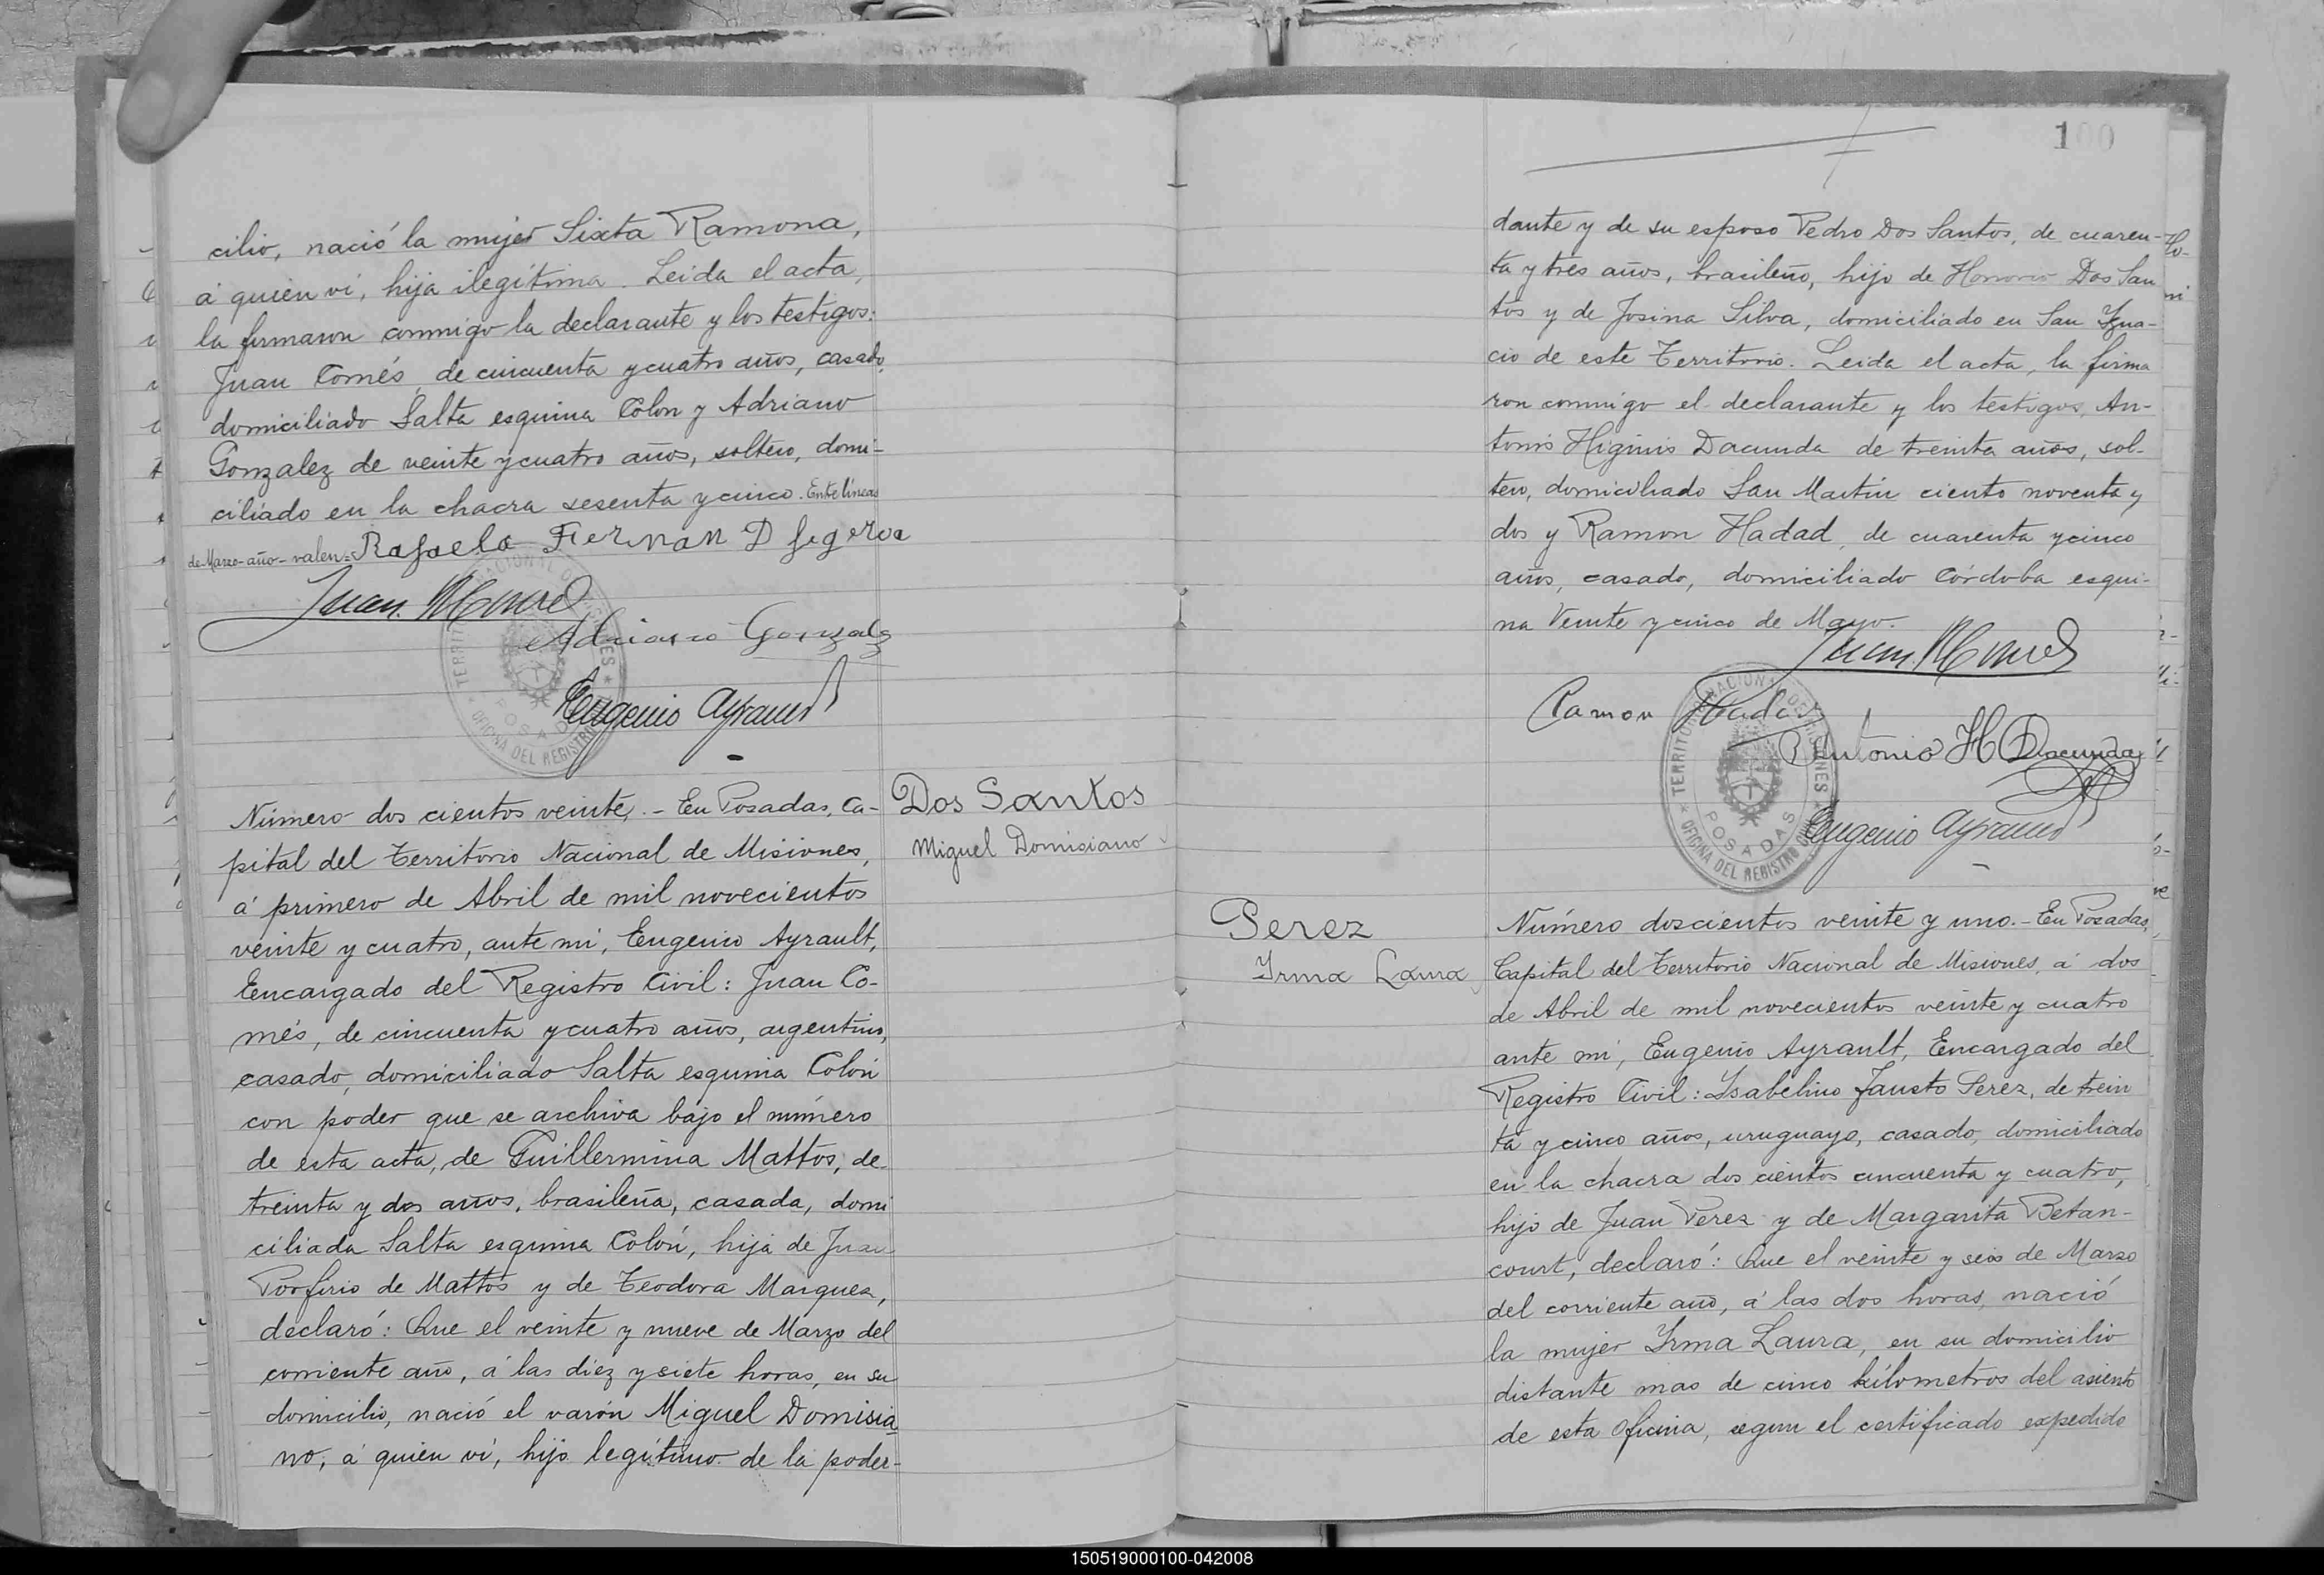 cilio, nació la mujer Sixta Ramona,
á quien ví, hija ilegítima. Leida el acta,
la firmaron conmigo la declarante y los testigos:
Juan Comés, de cincuenta y cuatro años, casado,
domiciliado Salta esquina Colon y Adriano
Gonzalez de veinte y cuatro años, soltero, domi-
ciliado en la chacra sesenta y cinco. Entre lineas
de Marzo-año-valen= Rafaela Fernan D
Juan
Adriano Gonzalez
Eugenio Ayrault
TERRITORIO NACIONAL DE MISIONES
POSADAS
OFICINA DEL REGISTRO
Dos Santos
Miguel Domisiano
Número dos cientos veinte.- En Posadas, Ca-
pital del Territorio Nacional de Misiones,
á primero de Abril de mil novecientos
veinte y cuatro, ante mi, Eugenio Ayrault,
Encargado del Registro Civil: Juan Co-
més, de cincuenta y cuatro años, argentino,
casado, domiciliado Salta esquina Colón
con poder que se archiva bajo el número
de esta acta, de Guillermina Mattos, de
treinta y dos años, brasileña, casada, domi
ciliada Salta esquina Colón, hija de Juan
Porfirio de Mattos y de Teodora Marques,
declaró: Que el veinte y nueve de Marzo del
corriente año, á las diez y siete horas, en su
domicilio, nació el varón Miguel Domisia
no, á quien ví, hijo legítimo de la poder-
100
dante y de su esposo Pedro Dos Santos, de cuaren-
ta y tres años, brasileño, hijo de Honorio Dos San
tos y de Josina Silva, domiciliado en San Igna-
cio de este Territorio. Leida el acta, la firma
ron conmigo el declarante y los testigos, An-
tonio Higinio Dacunda de treinta años, sol-
tero, domiciliado San Martín ciento noventa y
dos y Ramon Hadad, de cuarenta y cinco
años, casado, domiciliado Córdoba esqui-
na Veinte y cinco de Mayo.
Juan
Ramon Hadad
Antonio H Dacunda
Eugenio Ayrault
TERRITORIO NACIONAL DE MISIONES
POSADAS
OFICINA DEL REGISTRO CIVIL
Perez
Irma Laura
Número doscientos veinte y uno.- En Posadas,
Capital del Territorio Nacional de Misiones, á dos
de Abril de mil novecientos veinte y cuatro
ante mi, Eugenio Ayrault, Encargado del
Registro Civil: Ysabelino Fausto Perez, de trein
ta y cinco años, uruguayo, casado, domiciliado
en la chacra dos cientos cincuenta y cuatro,
hijo de Juan Perez y de Margarita Betan-
court, declaró: Que el veinte y seis de Marzo
del corriente año, á las dos horas, nació
la mujer Irma Laura, en su domicilio
distante mas de cinco kilometros del asiento
de esta Oficina, segun el certificado expedido
150519000100-042008